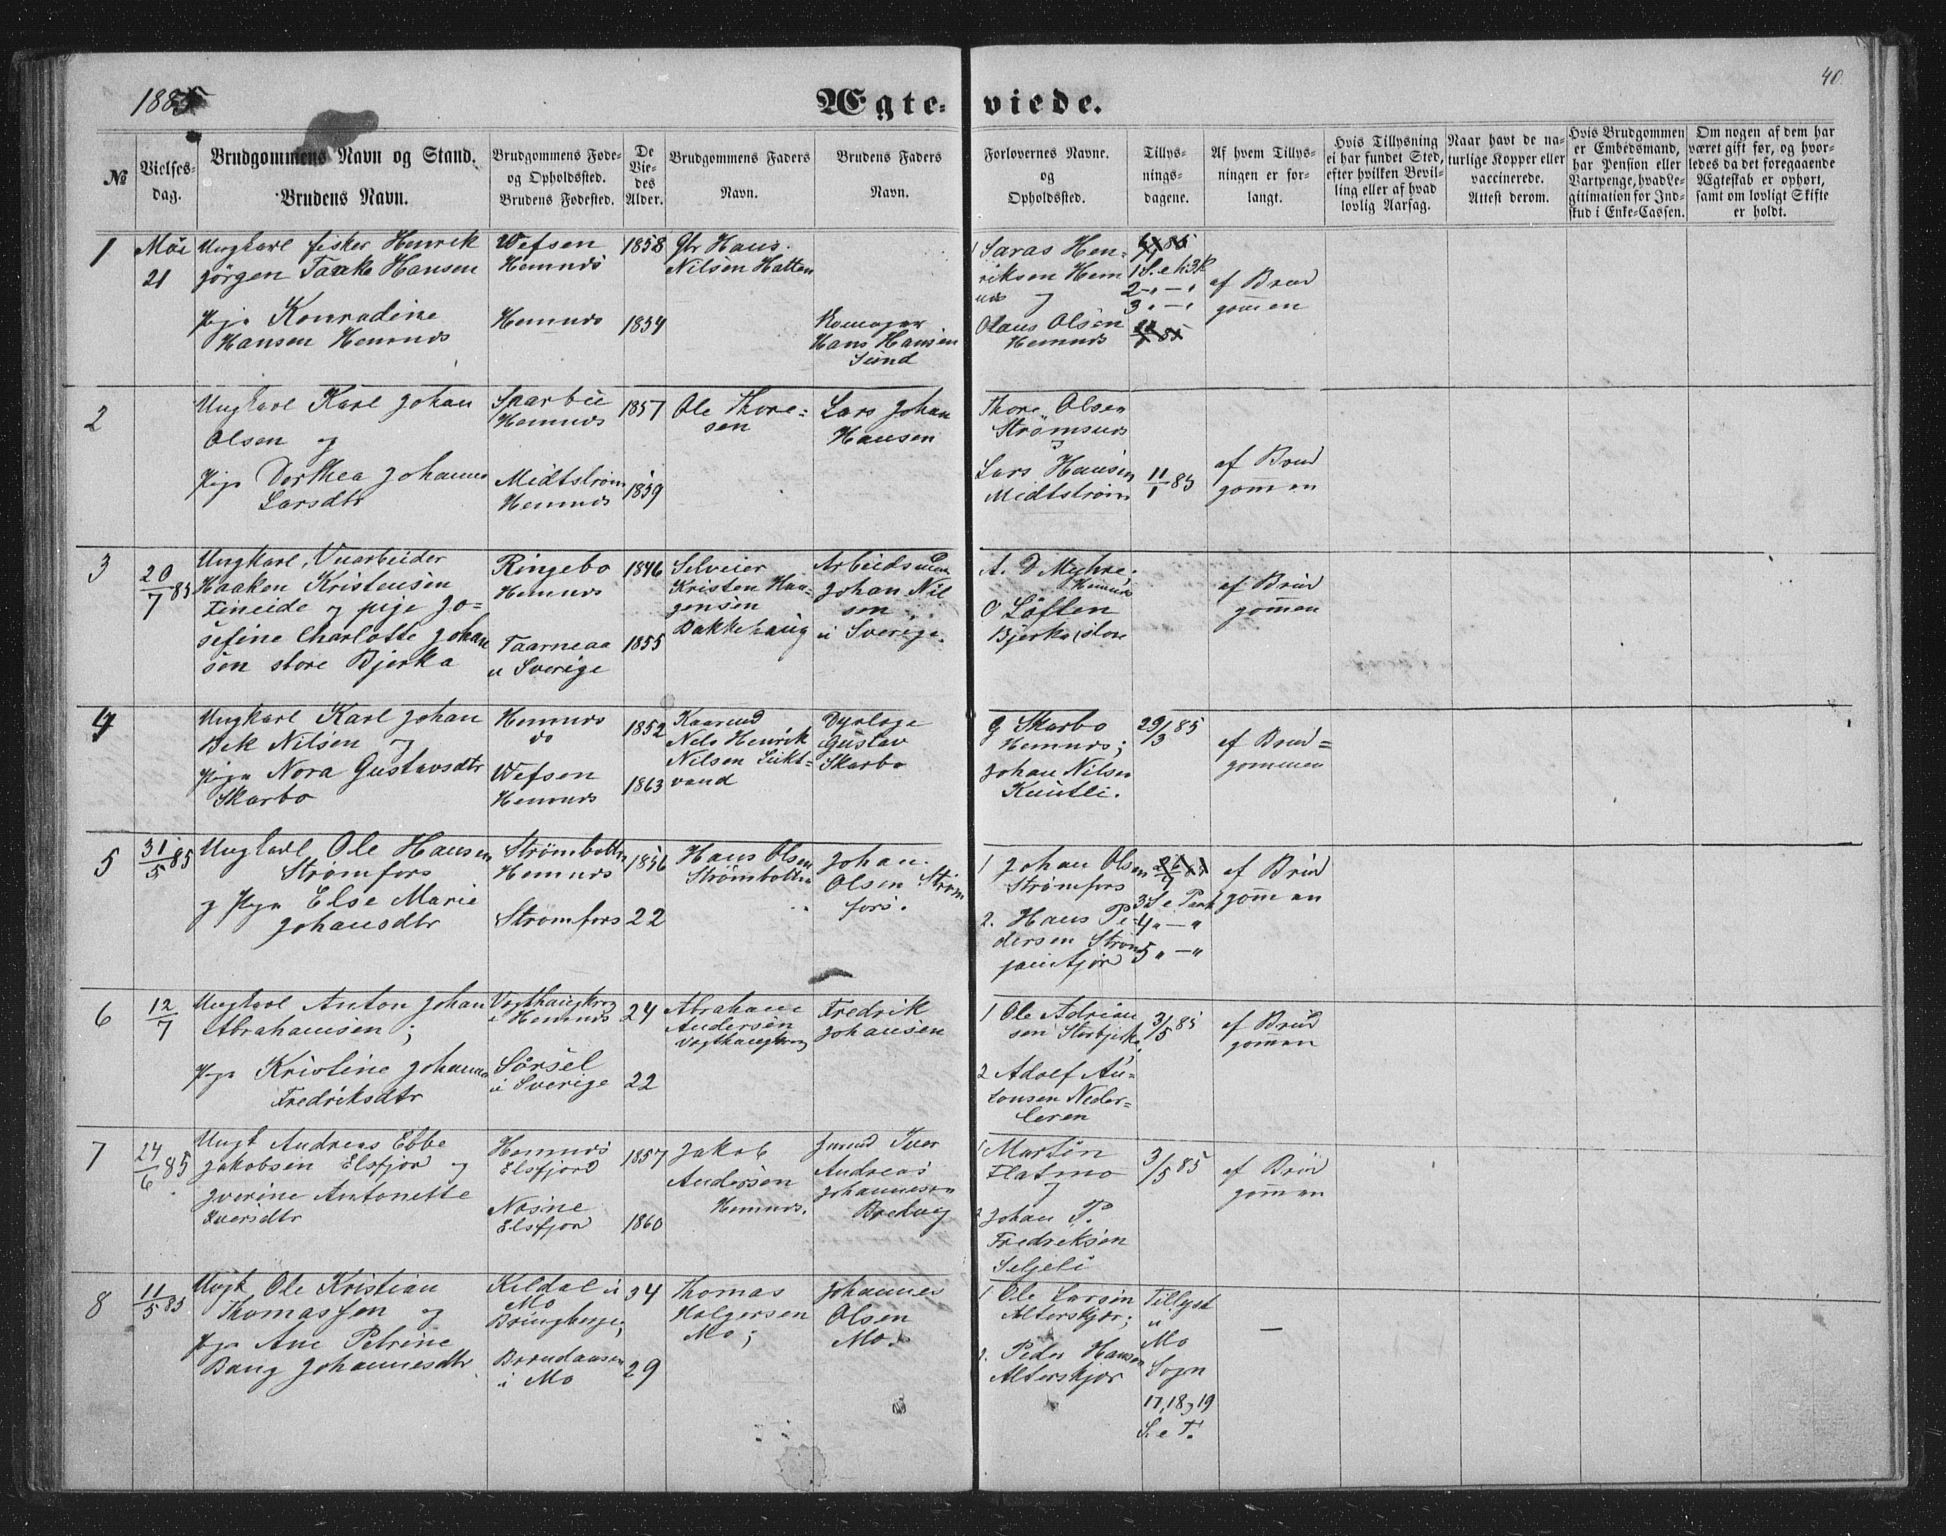 1885
Ægte-
viede.
40.
№
Vielses-
dag.
Brudgommens Navn og Stand.
Brudens Navn.
Brudgommens Føde-
og Opholdssted.
Brudens Fødested.
De
Vie-
des
Alder.
Brudgommens Faders
Navn.
Brudens Faders
Navn.
Forlovernes Navne.
og
Opholdssted.
Tillys-
nings-
dagene.
Af hvem Tillys-
ningen er for-
langt.
Hvis Tillysning
ei har fundet Sted,
efter hvilken Bevil-
ling eller af hvad
lovlig Aarsag.
Naar havt de na-
turlige Kopper eller
vaccinerede.
Attest derom.
Hvis Brudgommen
er Embedsmand,
har Pension eller
Vartpenge, hvad Le-
gitimation for Ind-
skud i Enke-Cassen.
Om nogen af dem har
været gift før, og hvor-
ledes da det foregaaende
Ægteskab er ophørt,
samt om lovligt Skifte
er holdt.
1
Mai
21
Ungkarl fisker Henrik
Jørgen Taake Hansen
Pige Konradine
Hansen Hemnes
Wefsen
Hemnes
Hemnes
1858
1854
Gbr Hans
Nilsen Hatten
Hans Hansen
Sund
Saras Hen-
riksen Hem
nes og
Olaus Olsen
Hemnes
1 S. e h3k
2 " — "
3 " — "
af Brud
gommen
2
Ungkarl Karl Johan
Olsen og
Pige Dorthea Johanna
Larsdtr
Sparbu
Hemnes
Midtstrøm
Hemnes
1857
1859
Ole Thore-
sen
Lars Johan
Hansen
Thore Olsen
Strømsnes
Lars Hansen
Midtstrøm
11/1 85
af Brud
gommen
3
20/7 85
Ungkarl, Vearbeider
Haaken Kristensen
Leneide og pige Jo-
sefine Charlotte Johan
sen store Bjerka
Ringebo
Hemnes
Taarneaa
i Sverige
1846
1855
Selveier
Kristen Haa-
gensen
Bakkehaug
Arbeidsmand
Johan Nil
sen
i Sverige.
A. D Myhre,
Hemnes
O Løften
Bjerka store
af Brud
gommen
4
Ungkarl Karl Johan
Bek Nilsen og
Pige Nora Gustavsdtr
Skarbo
Hemnes
do
Wefsen
Hemnes
1852
1863
Kaarmd
Nels Henrik
Nilsen Sukt-
vand
Dyrlæge
Gustav
Skarbo
G Skarbo
Hemnes;
Johan Nilsen
Kuntli.
29/3 85
af Brud=
gommen
5
31/5 85
Ungkarl Ole Hansen
Strømfors
og Pige Else Marie
Johansdtr
Strømbotten
Hemnes
Strømfors
1856
22
Hans Olsen
Strømbotten
Johan
Olsen Strøm
fors.
1 Johan Olsen
Strømfors
2. Hans Pe-
dersen Strøm
26/7 85
3 S e Paask
4 " — "
5 " — "
af Brud
gommen
6
12/7
Ungkarl Anton Johan
Abrahamsen;
Pige Kristine Johanna
Fredriksdtr
Vogthaugkrog
i Hemnes
Sørsel
i Sverige
24
22
Abraham
Andersen
Vogthaugkrog
Fredrik
Johansen
1 Ole Adrian
sen Storbjerka
2 Adolf An-
tonsen Neder-
leren
3/5 85
af Brud
gommen
7
24/6 85
Ungk Andreas Ebbe
Jakobsen Elsfjord og
Iverine Antonette
Iversdtr
Hemnes
Elsfjord
Nesne
Elsfjord
1857
1860
Jakob
Andersen
Hemnes.
Gmand Iver
Andreas
Johannesen
Bredvig
1 Martin
Flatmo
og
2 Johan P.
Fredriksen
Seljeli
3/5 85
af Brud
gommen
8
11/5 85
Ungk Ole Kristian
Thomassen og
Pige Ane Petrine
Bang Johannesdtr
Kildal i
Mo
Bringberget;
Brendaasen
i Mo
34
29
Thomas
Holgersen
Mo;
Johannes
Olsen
Mo.
1 Ole Larsen
Alterskjær;
2. Peder Hansen
Alterskjær
Tillyst
i
Mo
Sogn
17, 18 og 19
S. e T.
—